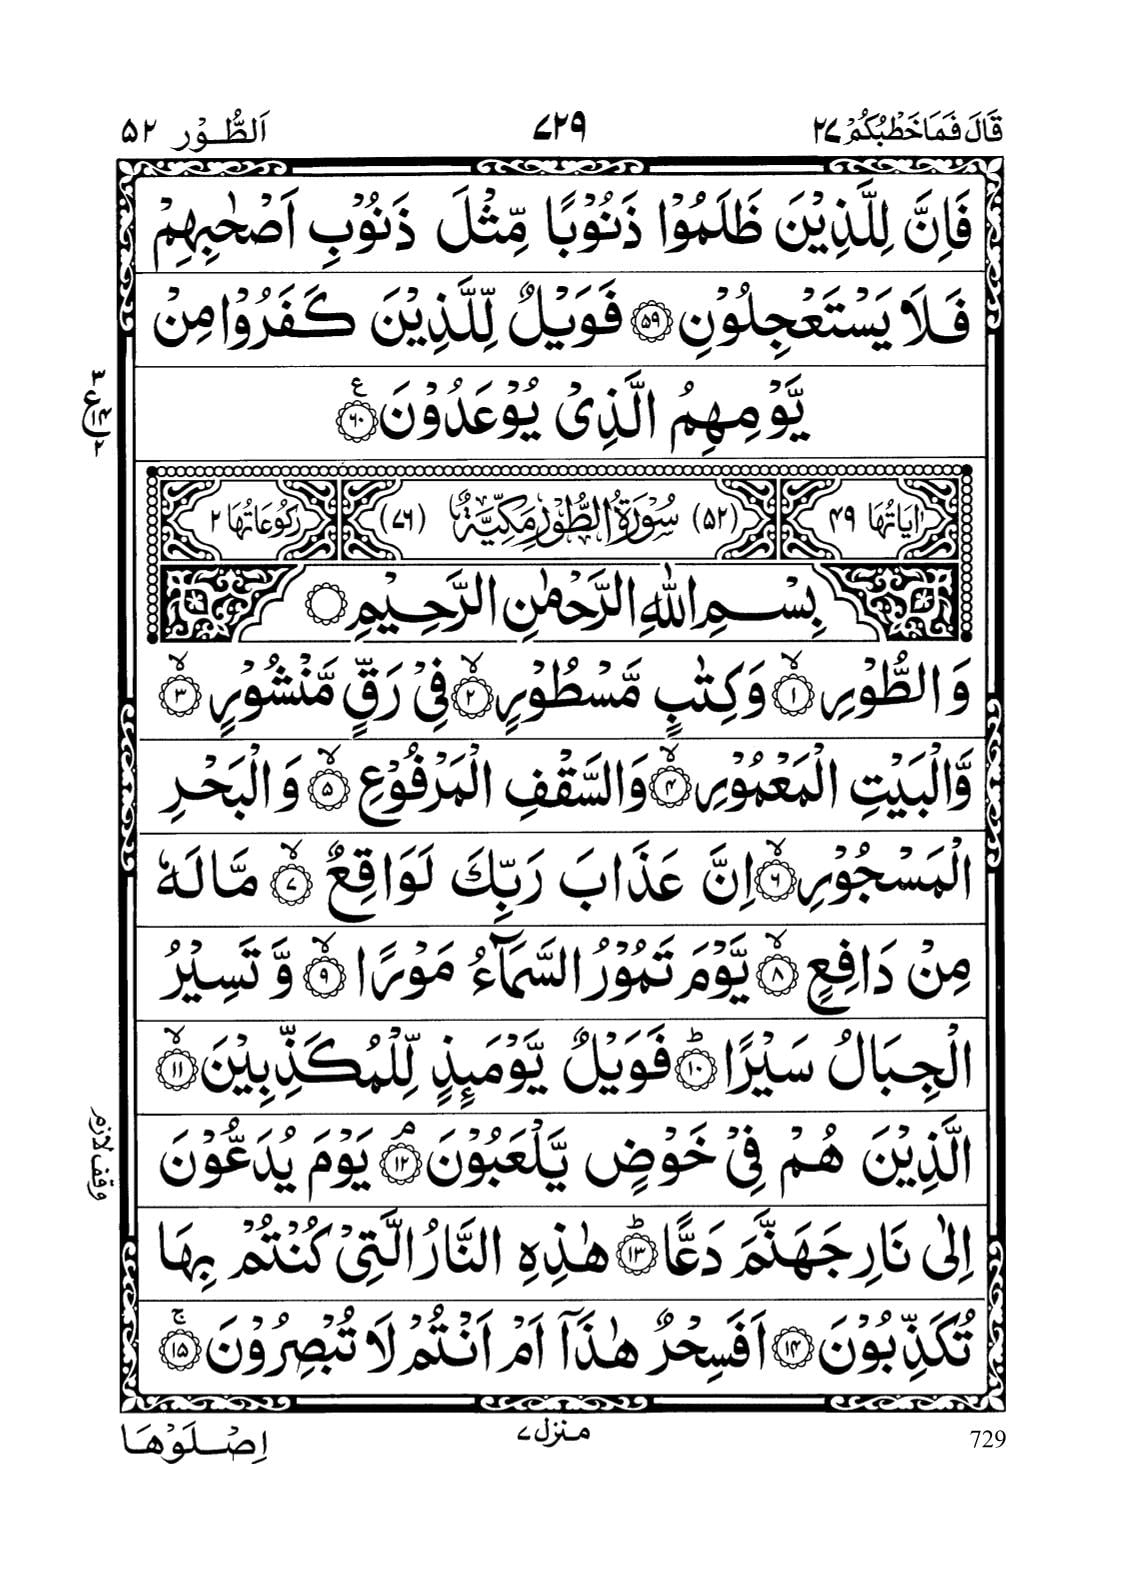 قَالَ فَمَا خَطْبُكُمْ ٢٧ ٧٢٩ اَلطُّوْر ٥٢
فَاِنَّ لِلَّذِيْنَ ظَلَمُوْا ذَنُوْبًا مِّثْلَ ذَنُوْبِ اَصْحٰبِهِمْ
فَلَا يَسْتَعْجِلُوْنِ ۝٥٩ فَوَيْلٌ لِّلَّذِيْنَ كَفَرُوْا مِنْ
يَّوْمِهِمُ الَّذِىْ يُوْعَدُوْنَ ۝٦٠ ع
٣
ع ١٤
٢
اٰيَاتُهَا ٤٩ (٥٢) سُوْرَةُ الطُّوْرِ مَكِّيَّةٌ (٧٦) رُكُوْعَاتُهَا ٢
بِسْمِ اللّٰهِ الرَّحْمٰنِ الرَّحِيْمِ ۝
وَالطُّوْرِ ۝١ۙ وَكِتٰبٍ مَّسْطُوْرٍ ۝٢ۙ فِىْ رَقٍّ مَّنْشُوْرٍ ۝٣ۙ
وَّالْبَيْتِ الْمَعْمُوْرِ ۝٤ۙ وَالسَّقْفِ الْمَرْفُوْعِ ۝٥ۙ وَالْبَحْرِ
الْمَسْجُوْرِ ۝٦ۙ اِنَّ عَذَابَ رَبِّكَ لَوَاقِعٌ ۝٧ۙ مَّا لَهٗ
مِنْ دَافِعٍ ۝٨ۙ يَّوْمَ تَمُوْرُ السَّمَآءُ مَوْرًا ۝٩ۙ وَّتَسِيْرُ
الْجِبَالُ سَيْرًا ۝١٠ؕ فَوَيْلٌ يَّوْمَئِذٍ لِّلْمُكَذِّبِيْنَ ۝١١ۙ
الَّذِيْنَ هُمْ فِىْ خَوْضٍ يَّلْعَبُوْنَ ۝١٢ۘ يَوْمَ يُدَعُّوْنَ
وقف لازم
اِلٰى نَارِ جَهَنَّمَ دَعًّا ۝١٣ؕ هٰذِهِ النَّارُ الَّتِىْ كُنْتُمْ بِهَا
تُكَذِّبُوْنَ ۝١٤ اَفَسِحْرٌ هٰذَآ اَمْ اَنْتُمْ لَا تُبْصِرُوْنَ ۝١٥ۚ
729 منزل ٧ اِصْلَوْهَا